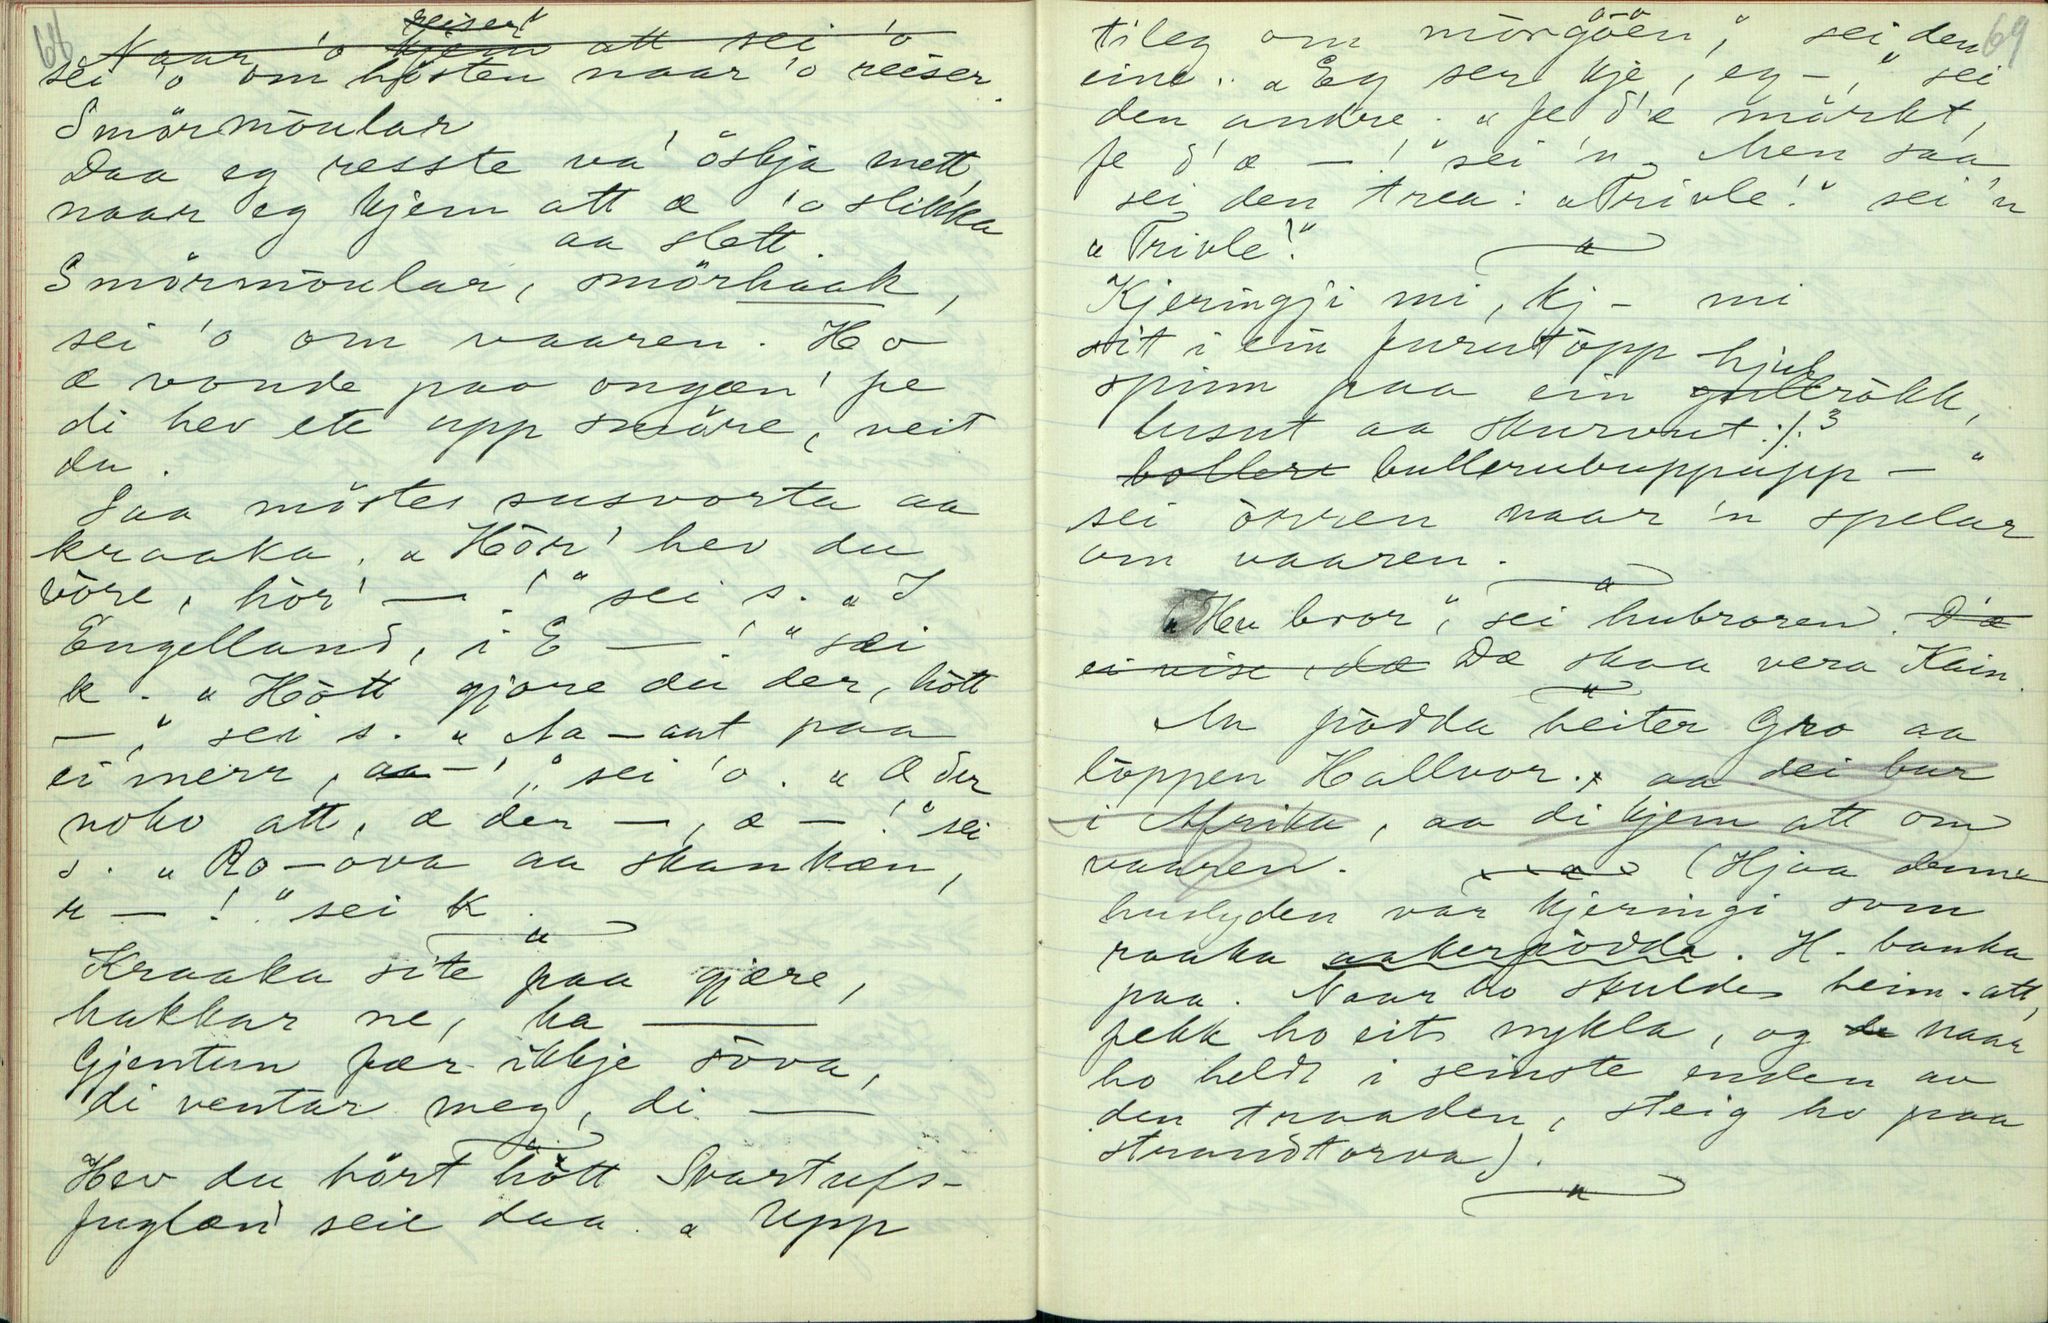 68
reiser
Naar 'o kjem att sei 'o
sei 'o om hösten naar 'o reiser.
Smörmöular
Daa eg reiste va' öskja mett,
naar eg kjem att æ 'o slikka
aa slett
Smörmöular, smörhaak,
sei 'o om vaaren. Ho
æ vonde paa ongæn' fe
di hev ete upp smöre, veit
du.
Saa möstes susvorta aa
kraaka. „Hör' hev du
vöre, hör' —!" sei s. „I
Engelland, i E —!" sæi
k. „Hött gjore du der, hött
—," sei s. „Aa - aat paa
ei merr, aa —'," sei 'o. „Æ der
noko att, æ der —, æ —!" sei
s. „Ro-ova aa skankæn,
r —!" sei k.
Kraaka site paa gjære,
hakkar ne, ha —
Gjentun fær ikkje söva,
di ventar meg, di —
Hev du hört hött Svartufs-
fuglæn seie daa. „Upp
69
tileg om mörgöen," sei den
eine. „Eg ser kje, eg —," sei
den andre. „Fe d'æ mörkt,
fe d'æ —!" sei 'n. Men saa
sei den trea: „Trivle!" sei 'n
„Trivle!"
Kjeringji mi, kj - mi
sit i ein furutöpp
hjul
spinn paa ein gullrökk,
lusut aa skurvut :/: 3
bollere bullerubuppupp — "
sei örren naar 'n spelar
om vaaren.
„Hu bror", sei hubroren. D'æ
ei vise, dæ Dæ skaa vera Kain.
Au pödda heiter Gro aa
löppen Hallvor. aa dei bur
i Afrika, aa di kjem att om
vaaren. (Hjaa denne
huslyden var kjeringi som
raaka aakerpödda. H. banka
paa. Naar ho skulde heim-att,
fekk ho eit nykla, og de naar
ho heldt i seinste enden av
den traaden, steig ho paa
strandtorva).